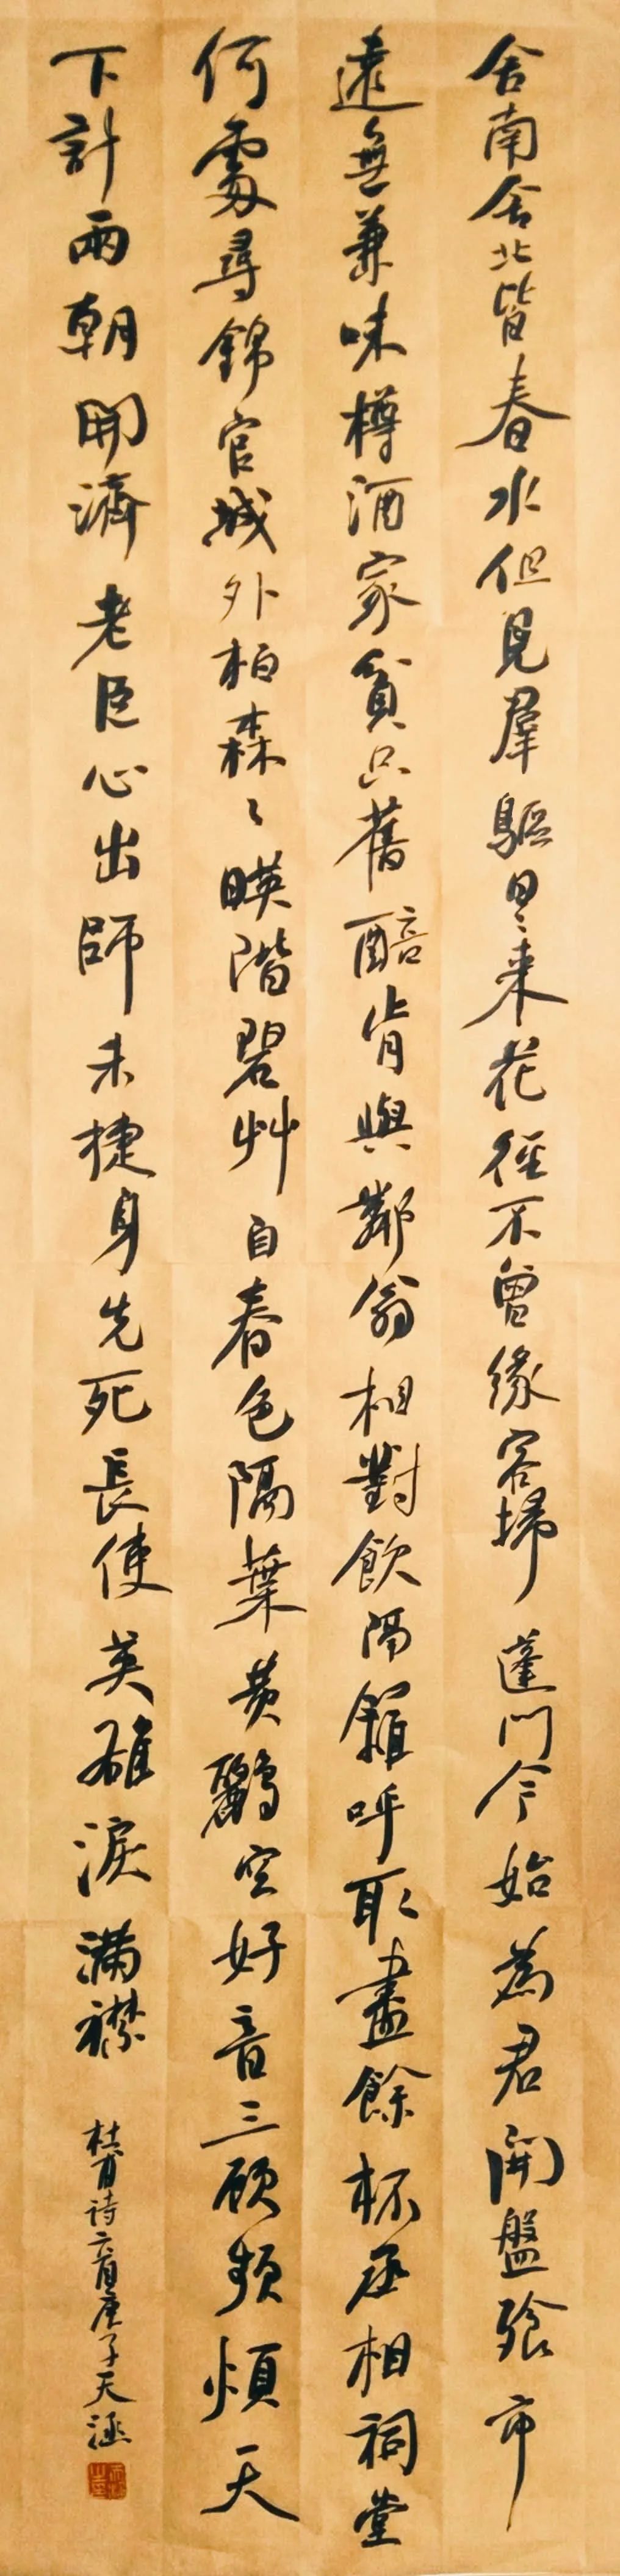 舍南舍北皆春水但見羣驅日〻来花徑不曾緣客掃蓬門今始為君開盤飧市
遠無兼味樽酒家貧只舊醅肯與鄰翁相對飲隔籬呼取盡餘杯丞相祠堂
何處尋錦官城外柏森〻暎階碧艸自春色隔葉黄鸝空好音三顧頻煩天
下計兩朝開濟老臣心出師未捷身先死長使英雄淚滿襟
杜甫詩二首庚子天涵